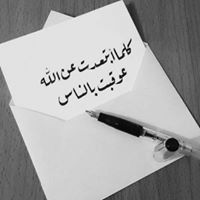 كلما أبتعدت عن الله
عوقبت بالناس